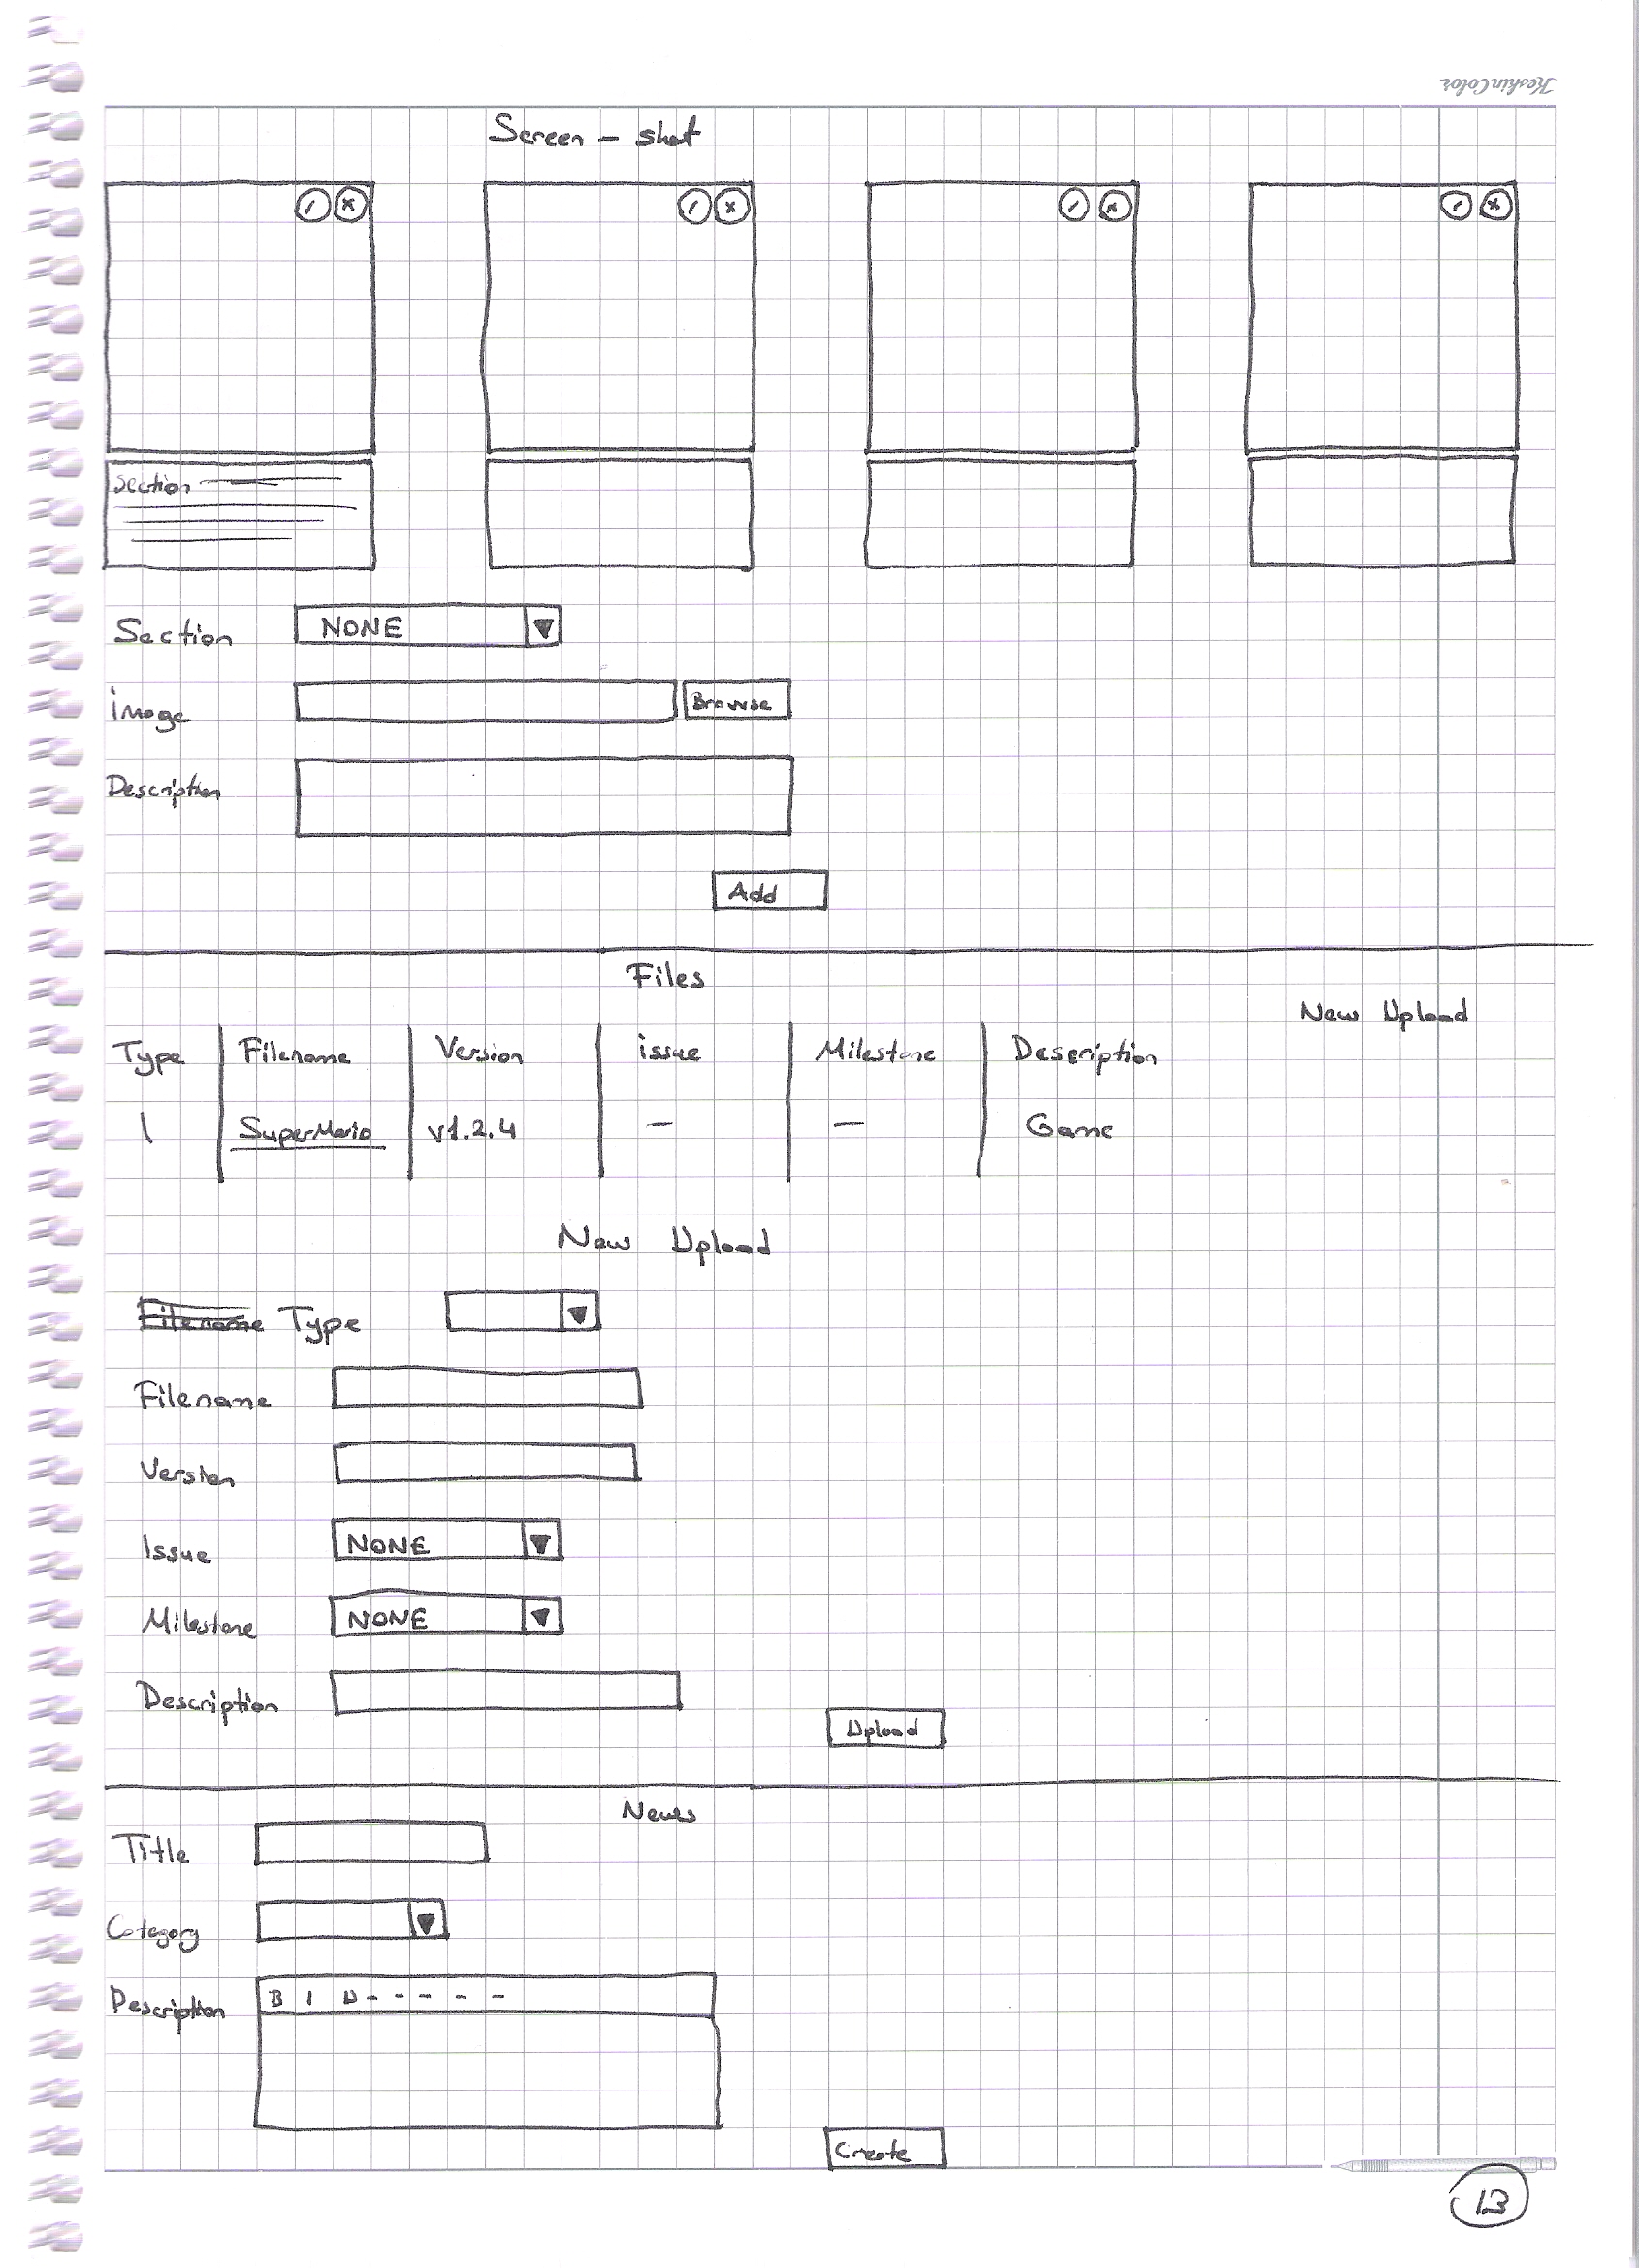 KeskinColor
Screen - shot
/ x / x / x / x
Section
Section NONE
image Browse
Description
Add
Files
New Upload
Type Filename Version issue Milestone Description
\ SuperMario v1.2.4 — — Game
New Upload
Filename Type
Filename
Version
Issue NONE
Milestone NONE
Description
Upload
News
Title
Category
Description B I U - - - - -
Create
13